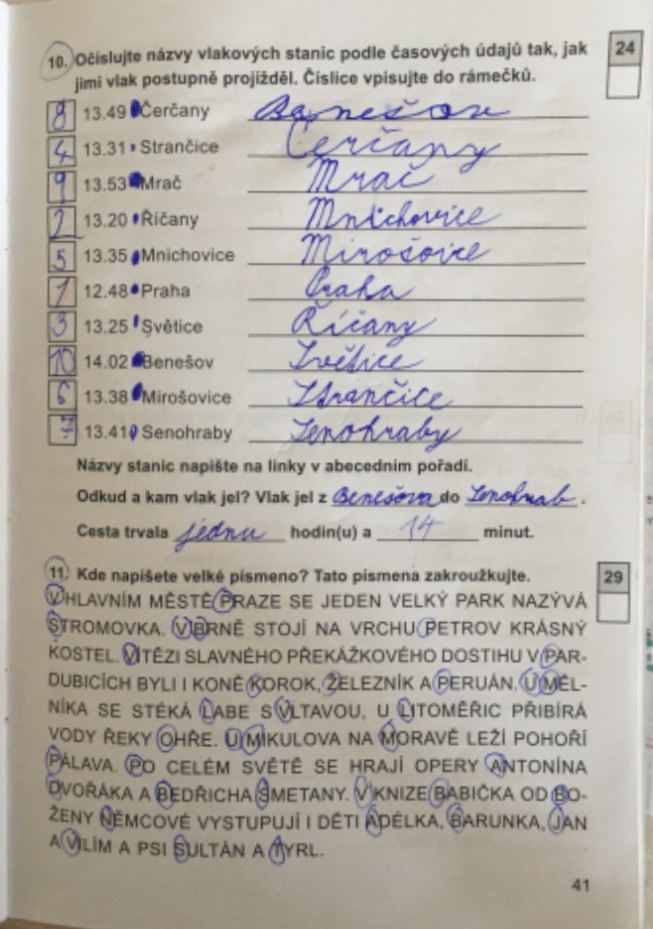 10. Očíslujte názvy vlakových stanic podle časových údajů tak, jak 24
jimi vlak postupně projížděl. Číslice vpisujte do rámečků.
8 13.49 Čerčany Benešov
4 13.31 Strančice Čerčany
9 13.53 Mrač Mrač
2 13.20 Říčany Mnichovice
5 13.35 Mnichovice Mirošovice
1 12.48 Praha Praha
3 13.25 Světice Říčany
10 14.02 Benešov Světice
6 13.38 Mirošovice Strančice
7 13.41 Senohraby Senohraby
Názvy stanic napište na linky v abecedním pořadí.
Odkud a kam vlak jel? Vlak jel z Benešova do Senohrab.
Cesta trvala jednu hodin(u) a 14 minut.
11. Kde napíšete velké písmeno? Tato písmena zakroužkujte. 29
V HLAVNÍM MĚSTĚ PRAZE SE JEDEN VELKÝ PARK NAZÝVÁ
STROMOVKA. V BRNĚ STOJÍ NA VRCHU PETROV KRÁSNÝ
KOSTEL. VÍTĚZI SLAVNÉHO PŘEKÁŽKOVÉHO DOSTIHU V PAR-
DUBICÍCH BYLI I KONĚ KOROK, ŽELEZNÍK A PERUÁN. U MĚL-
NÍKA SE STÉKÁ LABE S VLTAVOU, U LITOMĚŘIC PŘIBÍRÁ
VODY ŘEKY OHŘE. U MIKULOVA NA MORAVĚ LEŽÍ POHOŘÍ
PÁLAVA. PO CELÉM SVĚTĚ SE HRAJÍ OPERY ANTONÍNA
DVOŘÁKA A BEDŘICHA SMETANY. V KNIZE BABIČKA OD BO-
ŽENY NĚMCOVÉ VYSTUPUJÍ I DĚTI ADÉLKA, BARUNKA, JAN
A VILÍM A PSI SULTÁN A TYRL.
41